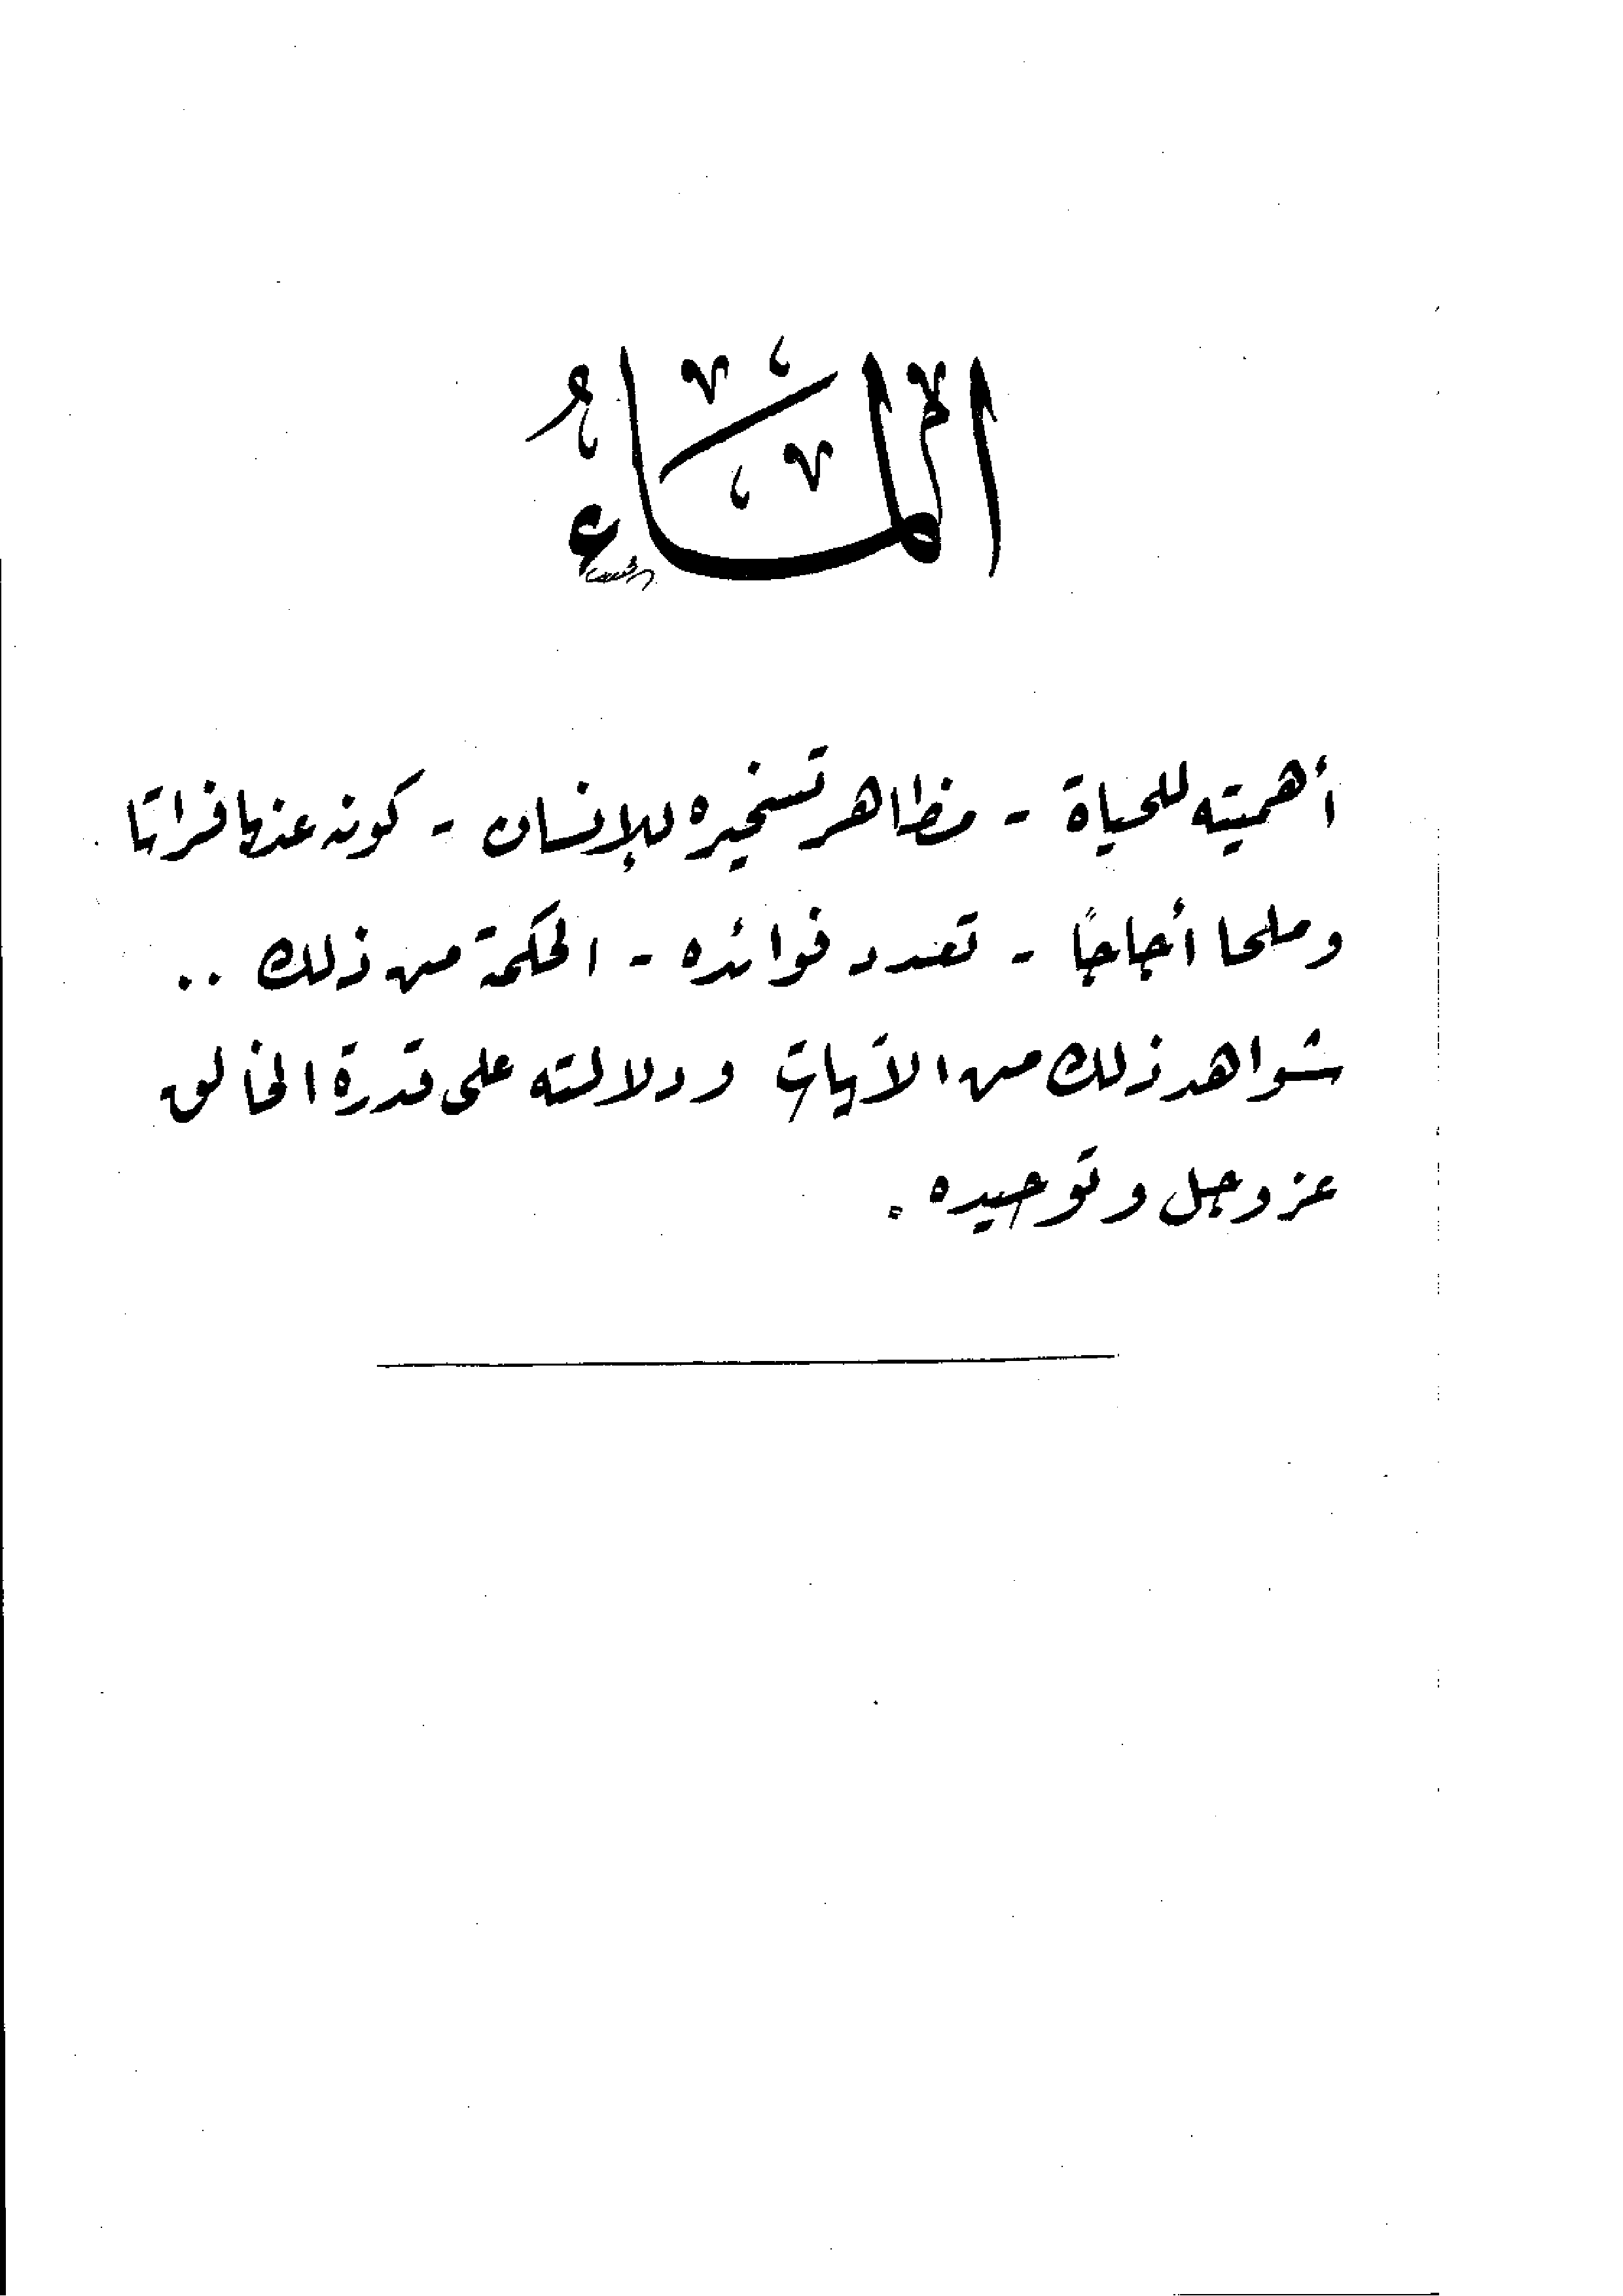 الماء
أهميته للحياة - مظاهر تسخيره للإنسان - كونه عذبا فراتا
وملحا أجاجًا - تعدد فوائده - الحكمة من ذلك ..
شواهد ذلك من الآيات ودلالته على قدرة الخالق
عز وجل وتوحيده .